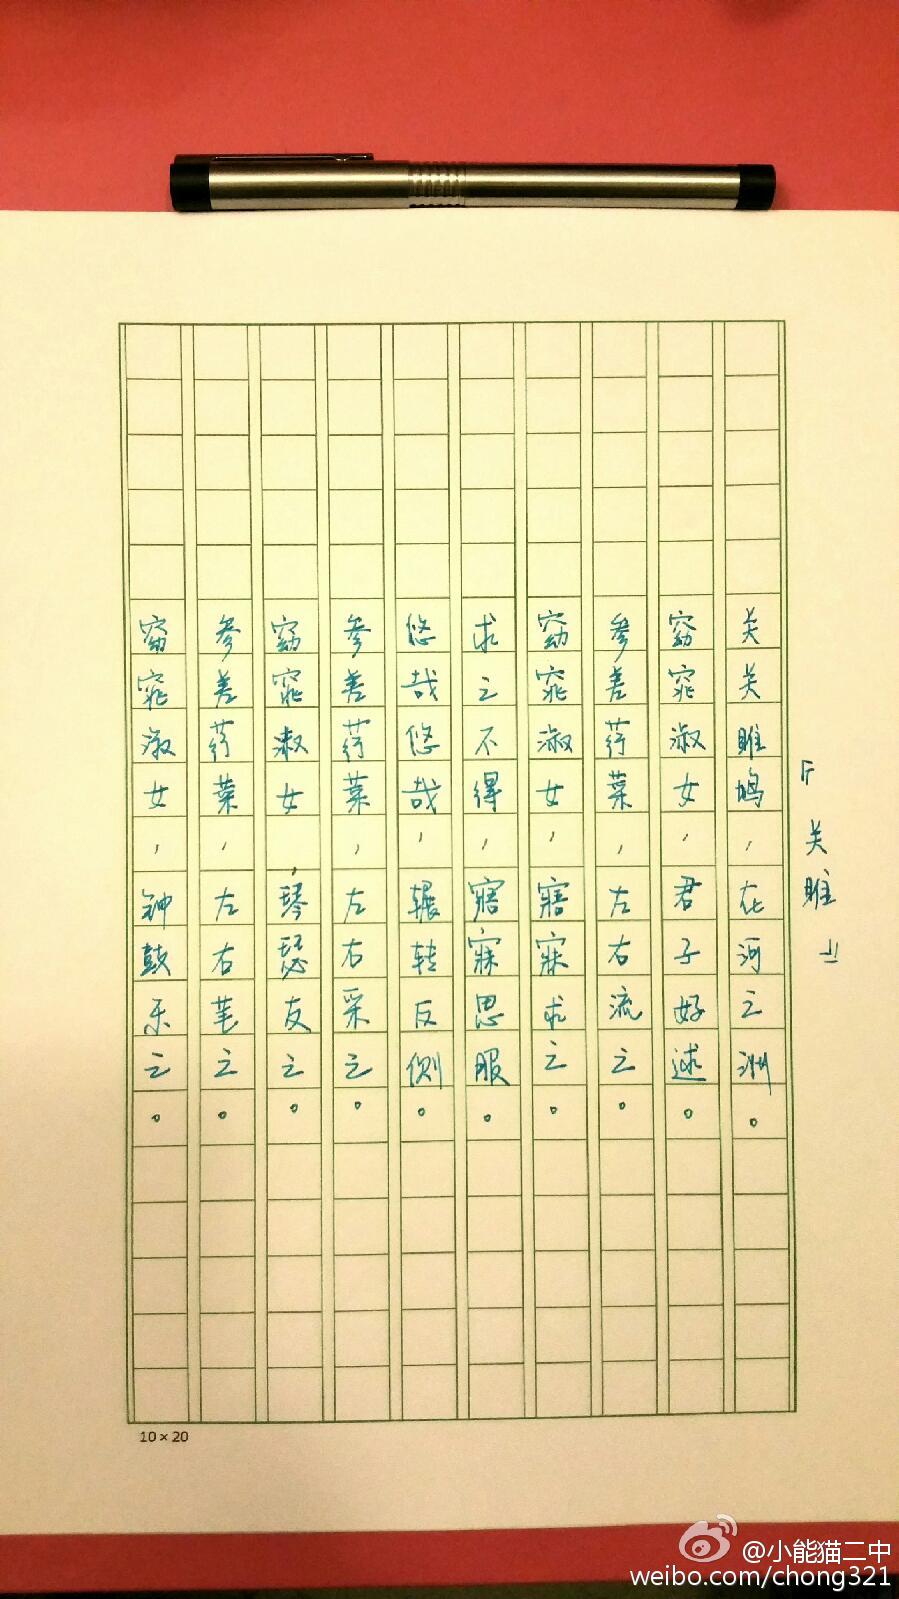 『关雎』
关关雎鸠，在河之洲。
窈窕淑女，君子好逑。
参差荇菜，左右流之。
窈窕淑女，寤寐求之。
求之不得，寤寐思服。
悠哉悠哉，辗转反侧。
参差荇菜，左右采之。
窈窕淑女，琴瑟友之。
参差荇菜，左右芼之。
窈窕淑女，钟鼓乐之。
10×20
@小能猫二中
weibo.com/chong321